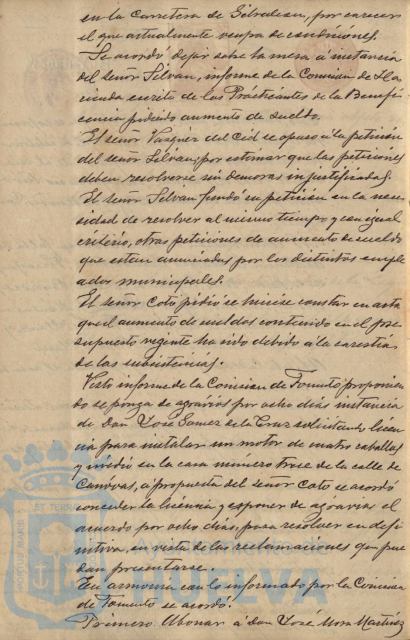 en la carretera de Gibraleon, por carecer
el que actualmente ocupa de condiciones.
Se acordó dejar sobre la mesa á instancia
del señor Silvan, informe de la Comision de Ha
cienda escrito de los Practicantes de la Benefi
cencia pidiendo aumento de sueldo.
El señor Vazquez del Cid se opuso á la petición
del señor Silvan, por estimar que las peticiones
deben resolverse sin demoras injustificadas.
El señor Silvan fundó su petición en la nece
sidad de resolver al mismo tiempo y con igual
criterio, otras peticiones de aumento de sueldo
que estan anunciadas por los distintos emple
ados municipales.
El señor Coto pidió se hiciese constar en acta
que el aumento de sueldos contenido en el pre
supuesto vigente ha sido debido á la carestia
de las subsistencias.
Visto informe de la Comision de Fomento proponien
do se ponga de agravios por ocho dias instancia
de don José Gomez de la Cruz solicitando licen
cia para instalar un motor de cuatro caballos
y medio en la casa número trece de la calle de
Canovas, á propuesta del señor Coto se acordó
conceder la licencia y esponer de agravios el
acuerdo por ocho dias, para resolver en defi
nitiva, en vista de las reclamaciones que pue
dan presentarse.
En armonia con lo informado por la Comision
de Fomento se acordó.
Primero. Abonar á don José Mora Martinez
PORTUS MARIS ET TERRAE
Ayuntamiento de
HUELVA